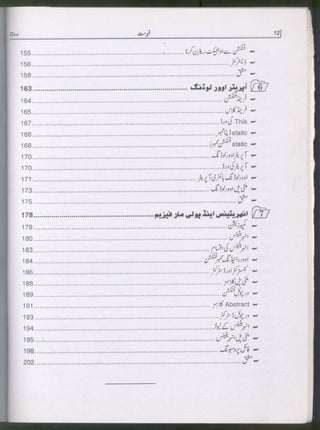 12 فہرست
فنکشن سے اوبجیکٹ ریٹرن کرنا 155
ڈسٹرکٹر 156
مشق 159
6 آپریٹر اوور لوڈنگ 163
فرینڈ فنکشن 164
فرینڈ کلاس 165
This کی ورڈ 167
static ڈیٹا ممبر 168
static فنکشن ممبرز 168
آپریٹر اوور لوڈنگ 170
آپریٹر کی ورڈ 170
اوور لوڈنگ بائنری آپریٹر 171
ملٹی پل اوور لوڈنگ 173
مشق 175
7 انھیریٹینس اینڈ پولی مار فیزیم 178
کمپوزیشن 179
انہریٹینس 180
انہریٹینس کی اقسام 183
اوور رائیڈنگ ممبر فنکشن 184
کنسٹرکٹر اور ڈسٹرکٹر 186
ملٹی پل کلاسز 188
ورچوئل فنکشن 189
Abstract کلاسز 191
ورچوئل ڈسٹرکٹر 193
انہریٹینس کے لیولز 194
ملٹی پل انہریٹینس 195
فائل پروسیسنگ 198
مشق 202